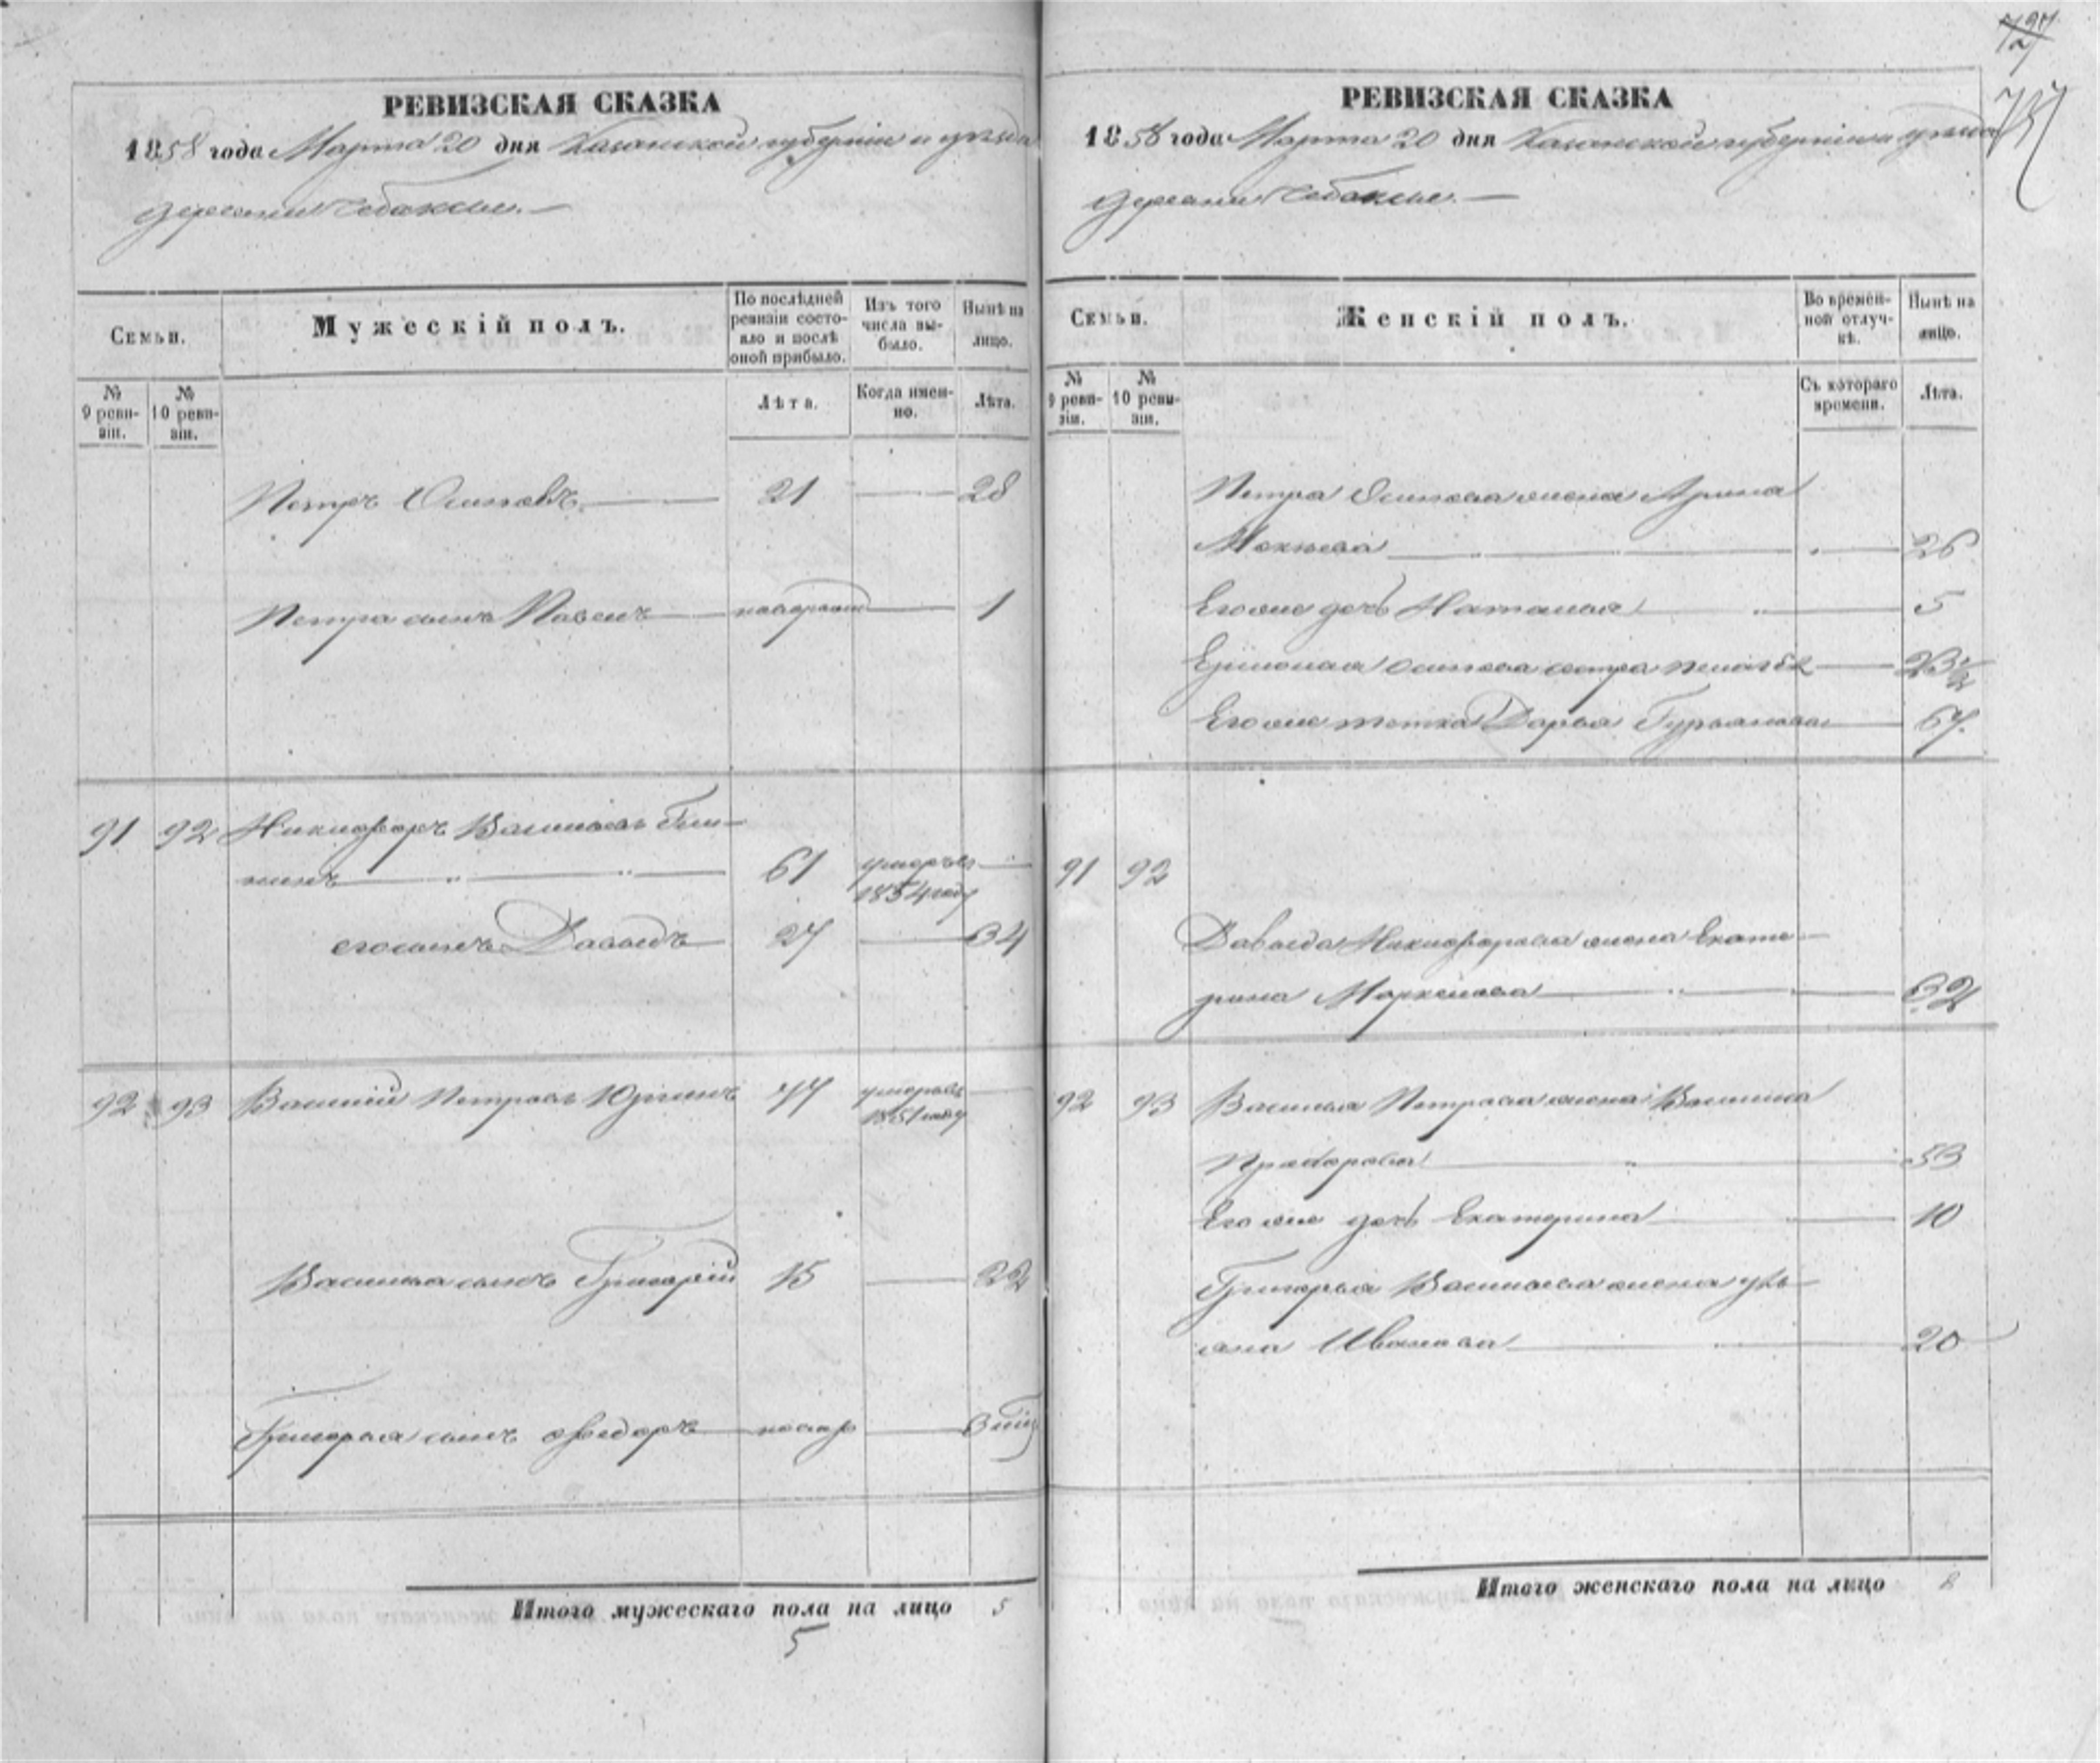 РЕВИЗСКАЯ СКАЗКА
1858 года Марта 20 дня Казанской губернии и уезда
деревни Чебаксы.
Семьи.
Мужескій полъ.
По послѣдней ревизіи состояло и послѣ оной прибыло.
Изъ того числа выбыло.
Нынѣ на лицо.
№ 9 ревизіи.
№ 10 ревизіи.
Лѣта.
Когда именно.
Лѣта.
Петръ Осиповъ 21 28
Петра сынъ Павелъ новорожд 1
91 92 Никифоръ Васильевъ
61 умеръ въ 1854 году
его сынъ Давыдъ 27 34
92 93 Василій Петровъ Юргинъ 47 умеръ въ 1851 году
Василья сынъ Григорій 15 22
Григорья сынъ Ѳедоръ новор 3
Итого мужескаго пола на лицо 5
5
727
РЕВИЗСКАЯ СКАЗКА
1858 года Марта 20 дня Казанской губерніи и уезда
деревни Чебаксы.
Семьи.
Женскій полъ.
Во временной отлучкѣ.
Нынѣ на лицо.
№ 9 ревизіи.
№ 10 ревизіи.
Съ котораго времени.
Лѣта.
Петра Осипова жена Арина
Мокѣева 26
Его же дочь Наталья 5
Осипова сестра 23 1/2
Его же тетка Дарья Гурьянова 67.
91 92
Давыда Никифорова жена Екате-
рина Маркелова 32
92 93 Василья Петрова жена Василиса
53
Его же дочь Екатерина 10
Григорья Васильева жена Уль-
яна Иванова 20
Итого женскаго пола на лицо 8